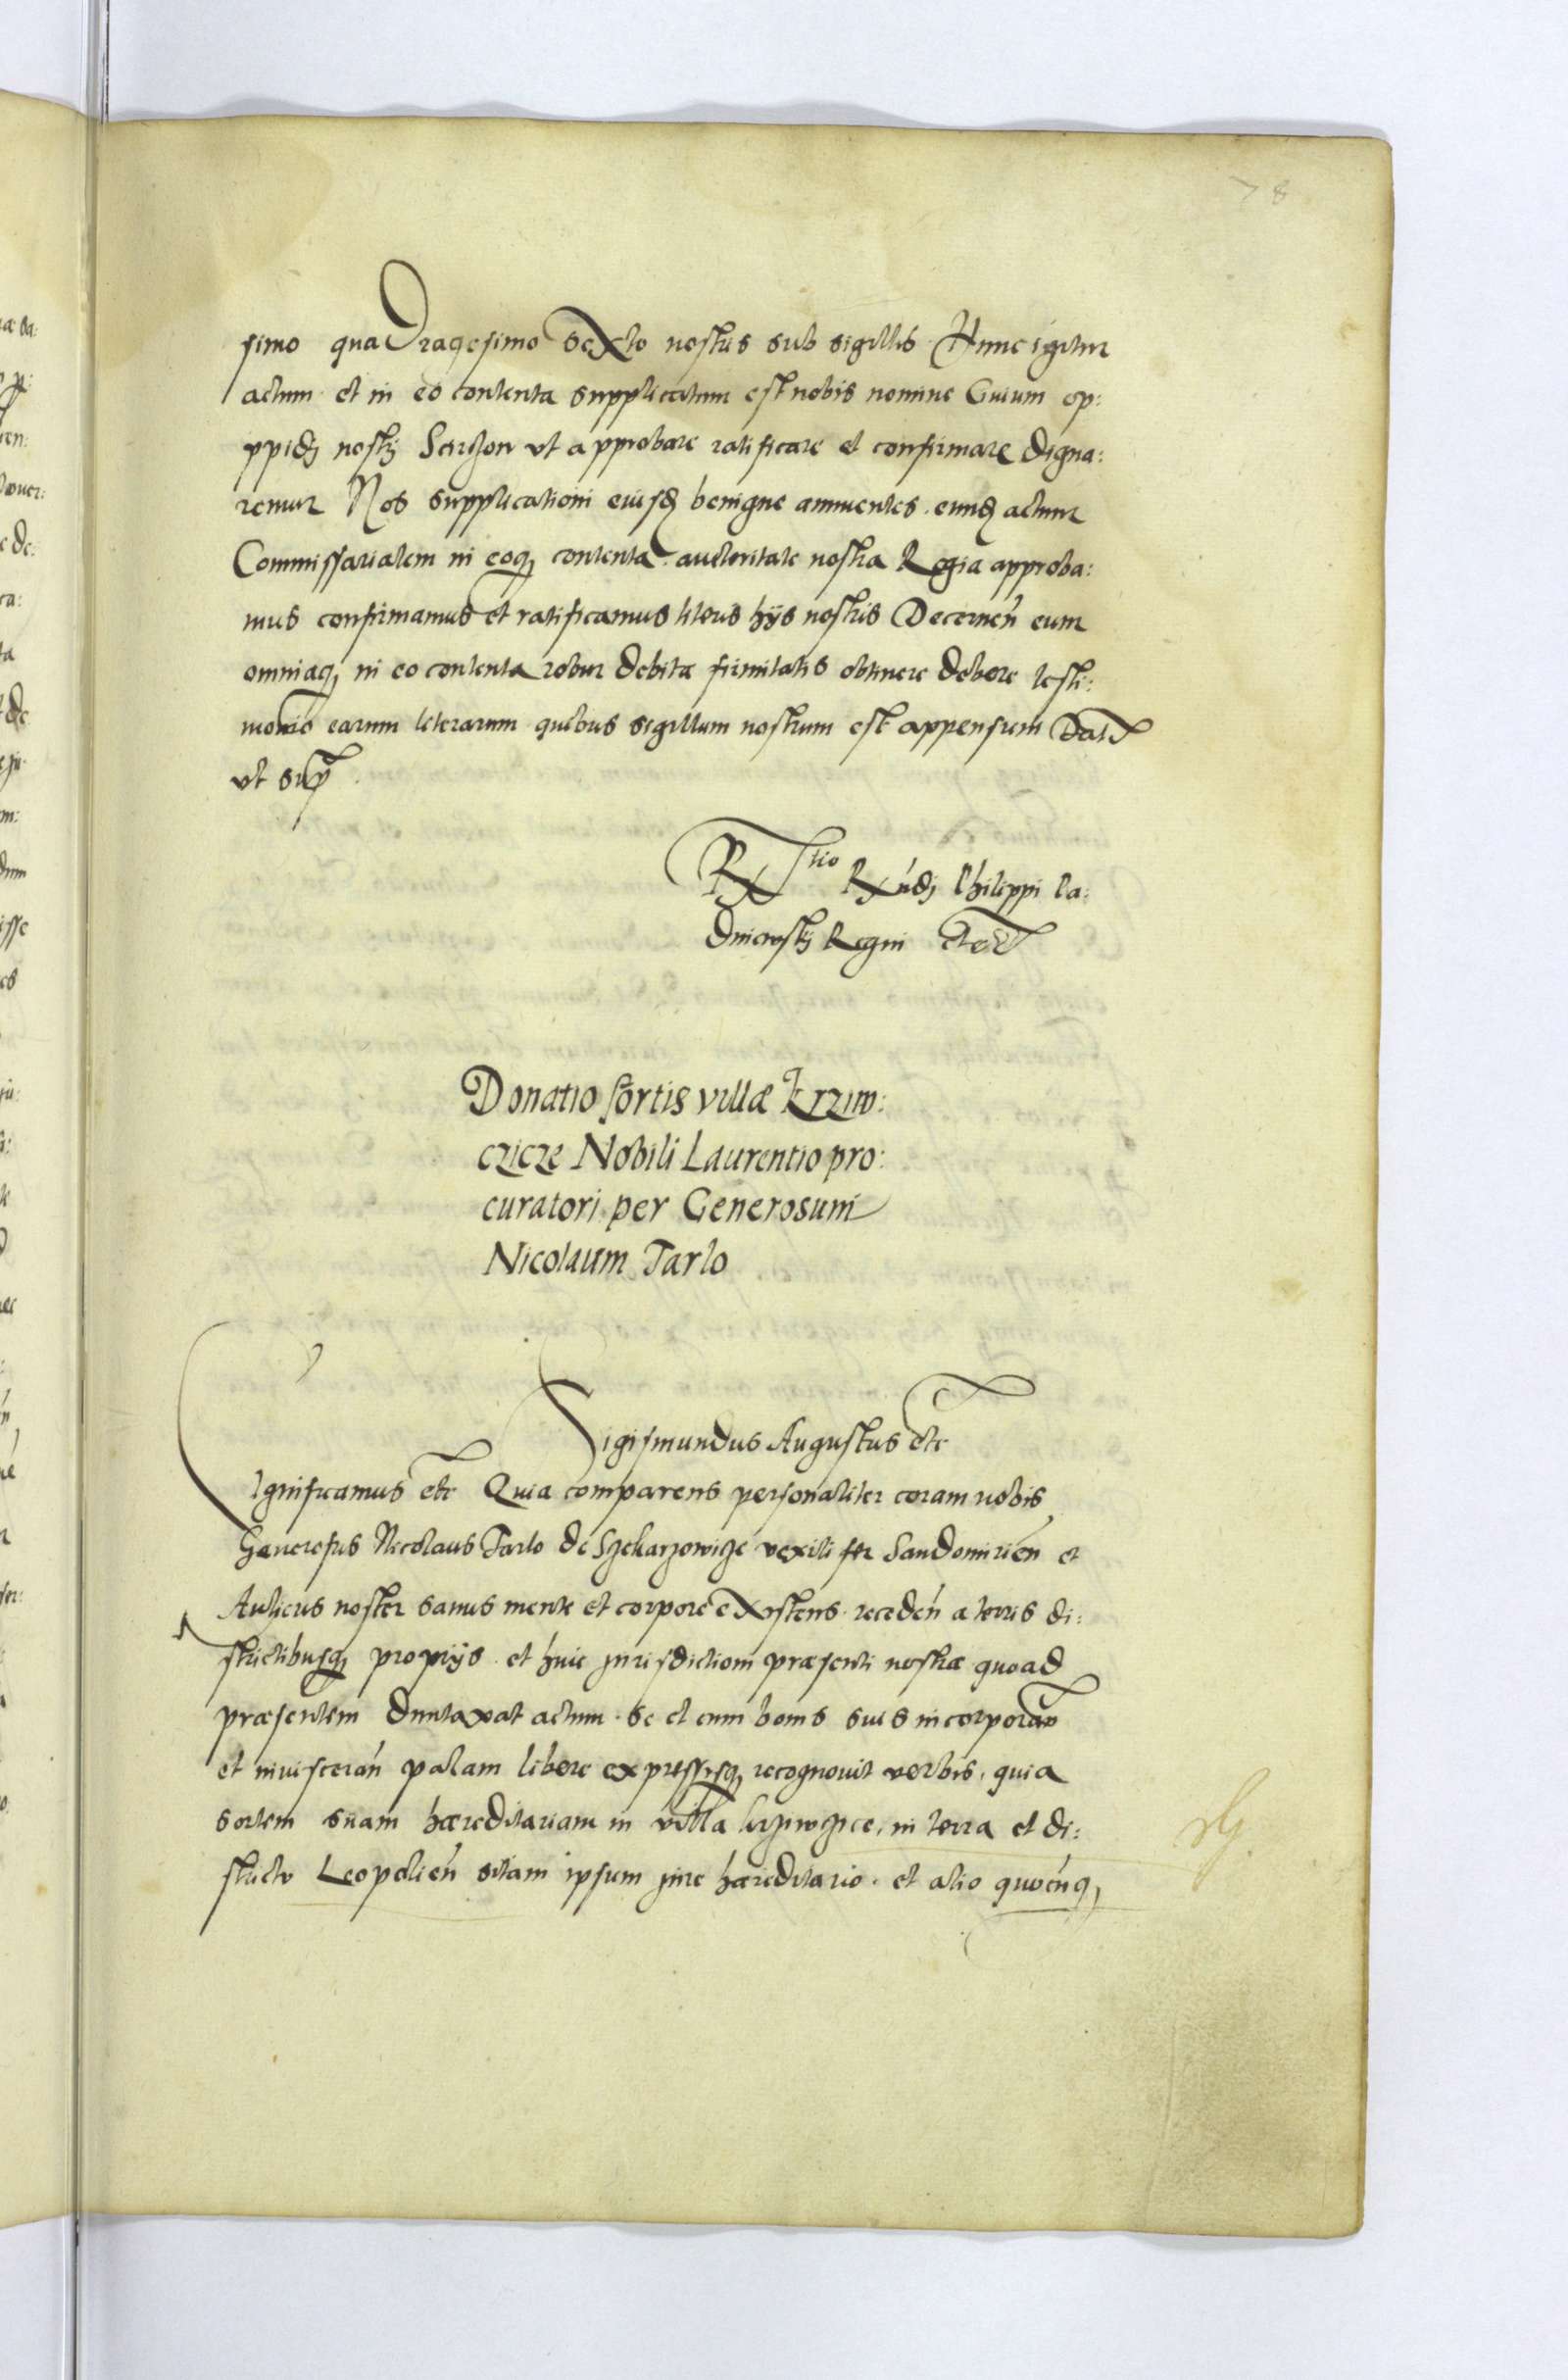 78
simo quadragesimo sexto nostris sub sigillis Hunc igitur
actum et in eo contenta supplicatum est nobis nomine Ciuium op:
ppidj nostrj ut approbare ratificare et confirmare digna:
remur Nos supplicationi eiusdem benigne annuentes eundem actum
Commissarialem in eoq, contenta auctoritate nostra Regia approba:
mus confirmamus et ratificamus literis hijs nostris Decernen eum
omniaq, in eo contenta robur debitæ firmitatis obtinere debere testi:
monio earum literarum quibus sigillum nostrum est appensum Dat
vt supra
Rtio Rndj Philippi Pa:
dniewskj Regni etc
Donatio sortis villæ Krziw:
czicze Nobili Laurentio pro:
curatori per Generosum
Nicolaum Tarlo
Sigismundus Augustus etc
Significamus etc Quia comparens personaliter coram nobis
Generosus Nicolaus Tarlo de Szekarzowicze vexilifer Sandomirien et
Aulicus noster sanus mente et corpore existens receden a terris di:
strictibusq, proprijs et huic jurisdictioni præsenti nostræ quoad
præsentem duntaxat actum se et cum bonis suis incorporan
et inuisceran palam libere expressisq, recognouit verbis, quia
sortem suam hæreditariam in villa krziwczice, in terra et di:
strictu Leopolien sitam ipsum jure hæreditario et alio quocunq,